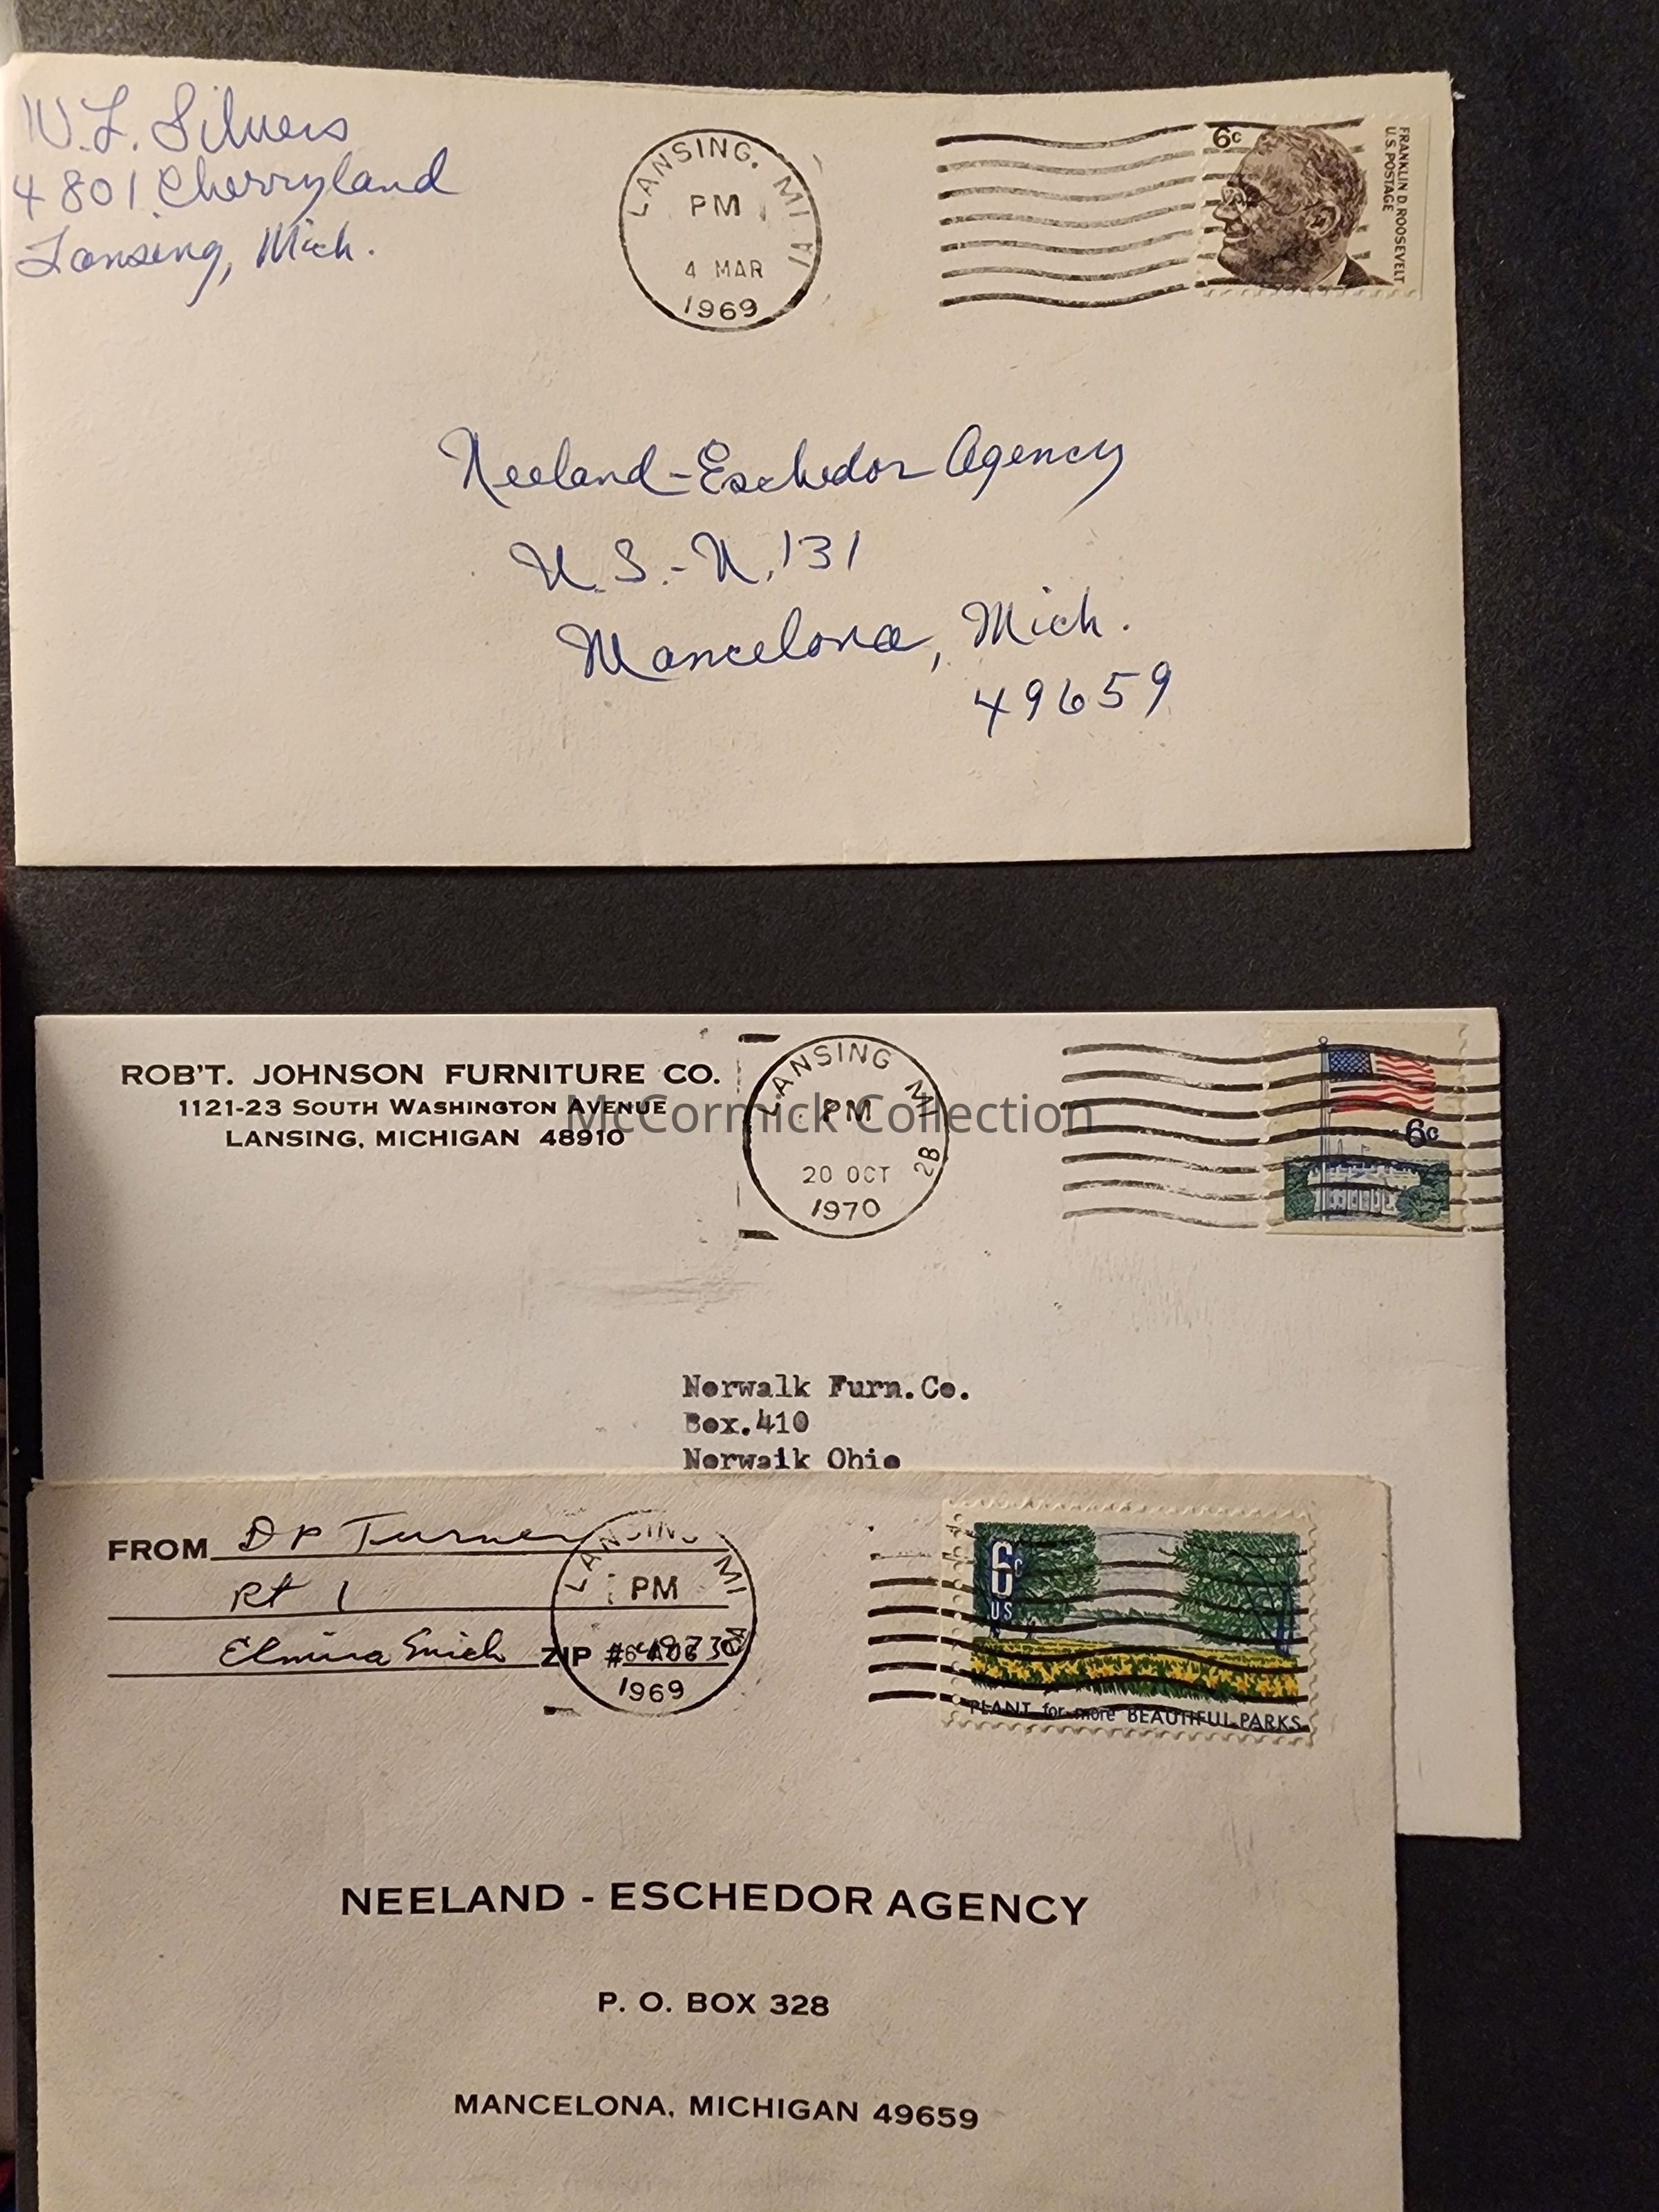 W.L. Silvers
4801 Cherryland
Lansing, Mich.
LANSING, MI
PM
1A
4 MAR
1969
6c
FRANKLIN D. ROOSEVELT
U.S. POSTAGE
Neeland-Eschedor Agency
U.S.-N.131
Mancelona, Mich.
49659
ROB'T. JOHNSON FURNITURE CO.
1121-23 SOUTH WASHINGTON AVENUE
LANSING, MICHIGAN 48910
LANSING MI
PM
2B
20 OCT
1970
6c
McCormick Collection
Norwalk Furn.Co.
Box.410
Norwaik Ohio
FROM D P Turner
Rt 1
Elmira Mich ZIP #
LANSING MI
PM
6 AUG
1969
6c
US
PLANT for more BEAUTIFUL PARKS
NEELAND - ESCHEDOR AGENCY
P. O. BOX 328
MANCELONA, MICHIGAN 49659